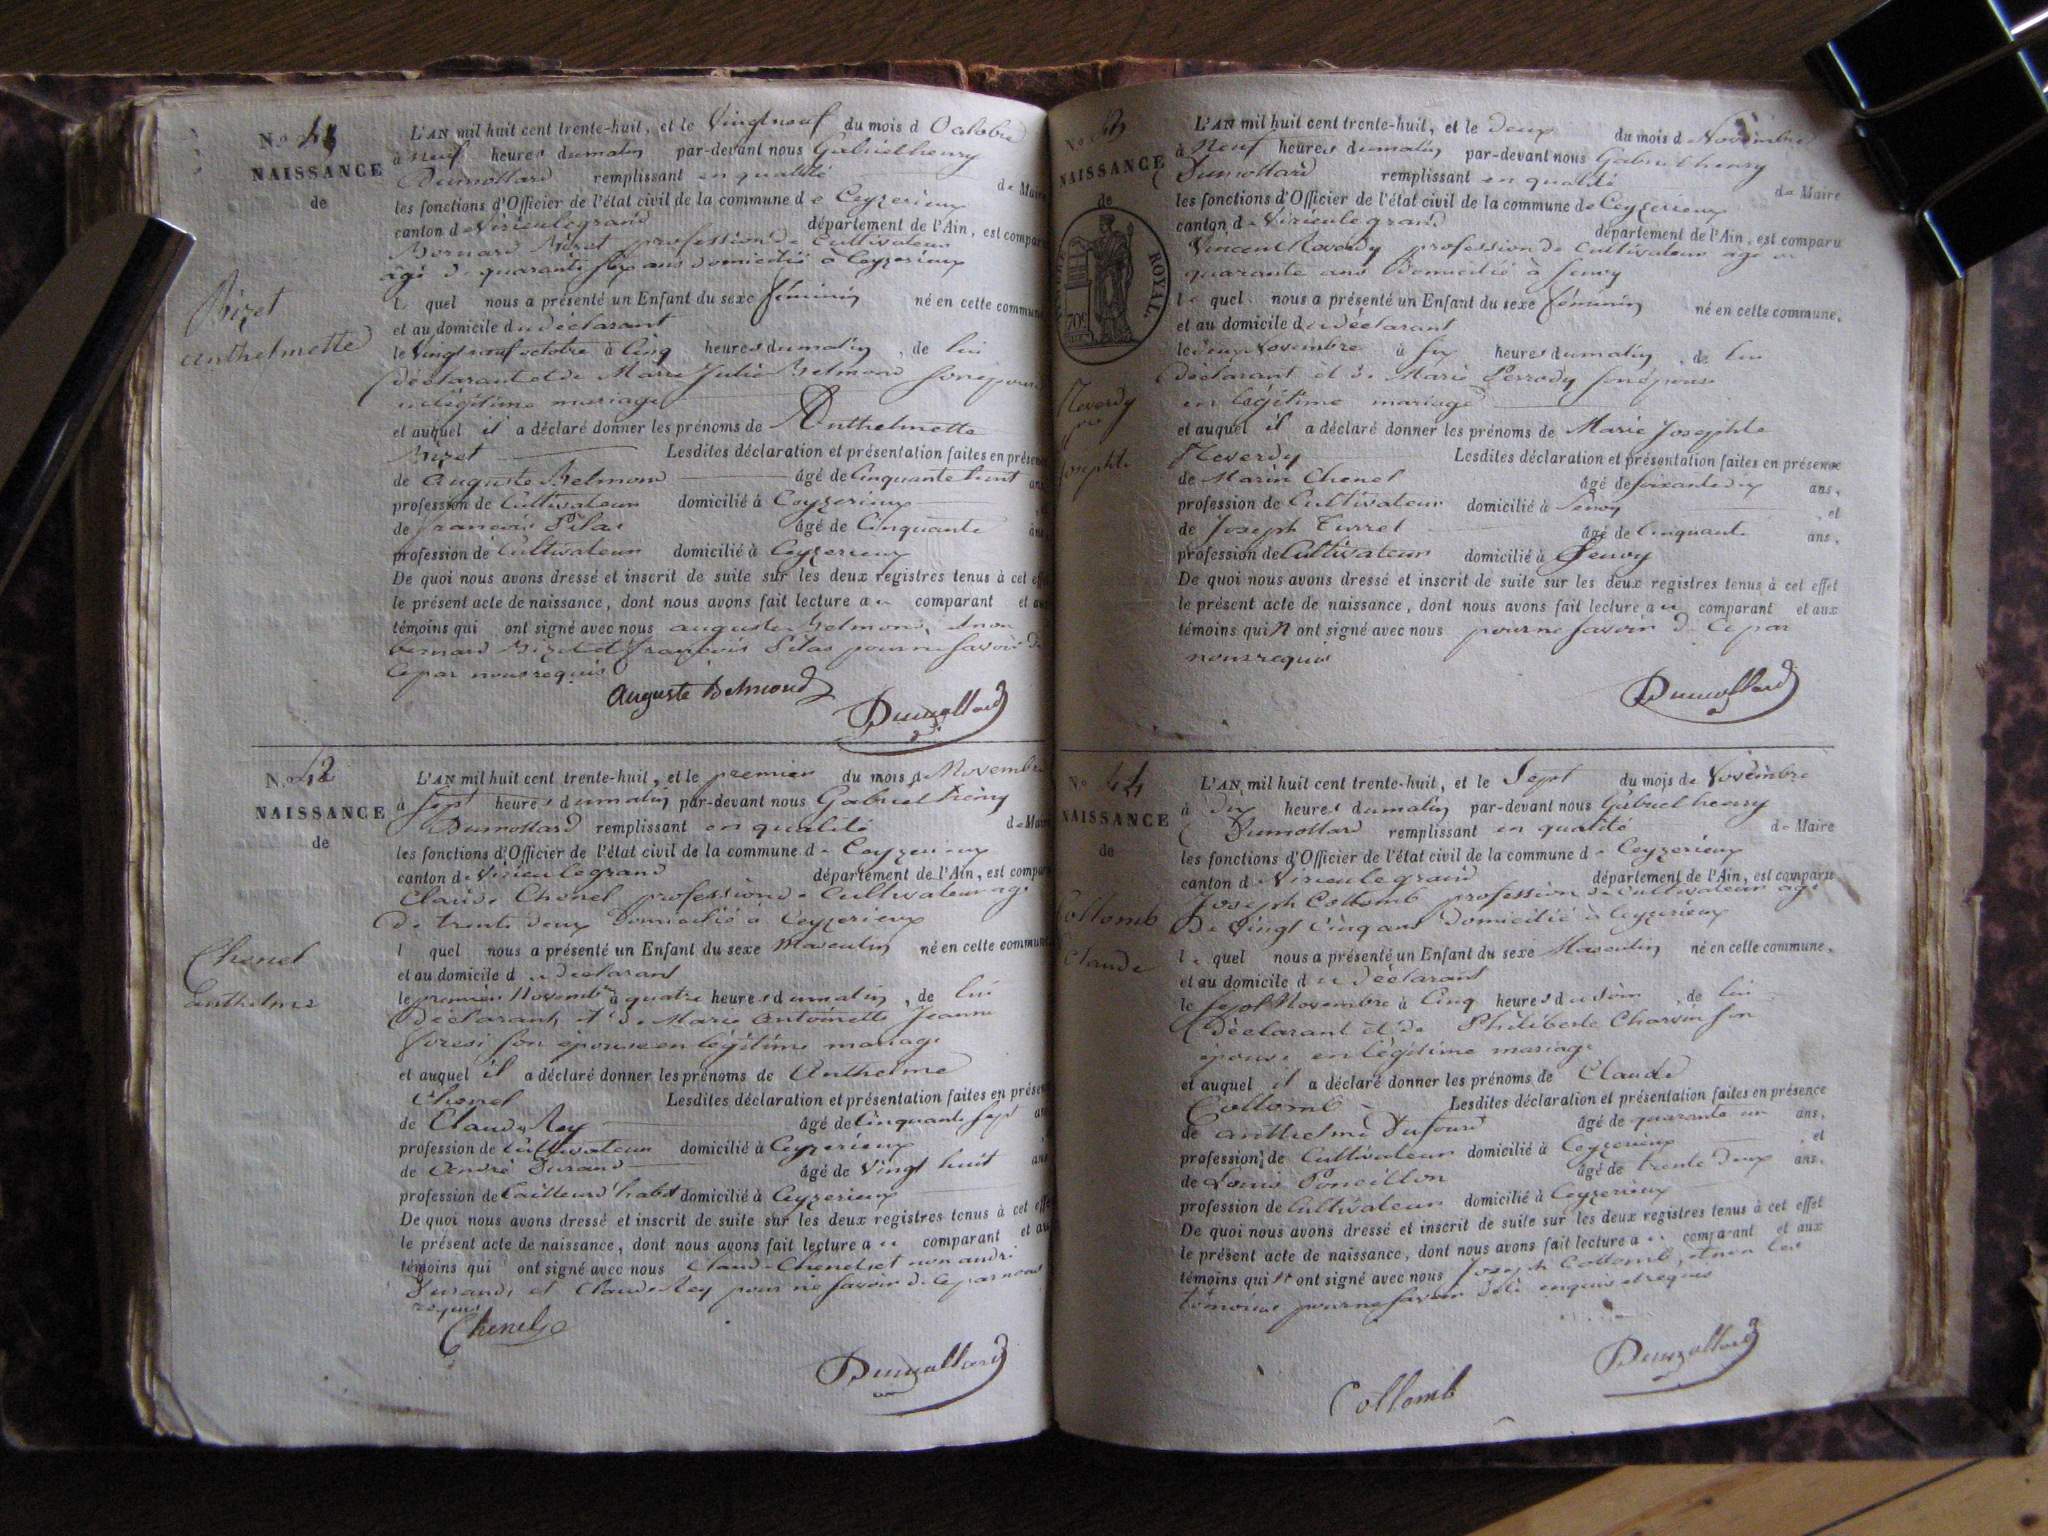 N.o 41
NAISSANCE
de
Bizet
anthelmette
L'AN mil huit cent trente-huit, et le Vingt neuf du mois d Octobre
à neuf heures du matin par-devant nous Gabriel henry
Dumollard remplissant en qualité de Maire
les fonctions d'Officier de l'état civil de la commune de Ceyzerieux
canton de Virieu le grand département de l'Ain, est comparu
Bernard Bizet profession de Cultivateur
âgé de quarante six ans domicilié à Ceyzerieux
l quel nous a présenté un Enfant du sexe féminin né en cette commune
et au domicile du déclarant
le Vingt neuf octobre à Cinq heures du matin, de lui
déclarant et de Marie Julie Belmond son épouse
en légitime mariage
et auquel il a déclaré donner les prénoms de Anthelmette
Bizet Lesdites déclaration et présentation faites en présence
de Auguste Belmond âgé de Cinquante huit ans
profession de Cultivateur domicilié à Ceyzerieux
de francois Pilas âgé de Cinquante ans
profession de Cultivateur domicilié à Ceyzerieux
De quoi nous avons dressé et inscrit de suite sur les deux registres tenus à cet effet
le présent acte de naissance, dont nous avons fait lecture au comparant et aux
témoins qui ont signé avec nous auguste Belmond, et non
bernard Bizet et françois Pilas pour ne savoir de
Ce par nous requis
Auguste Belmond
Dumollard
N.o 42
NAISSANCE
de
Chenel
anthelme
L'AN mil huit cent trente-huit, et le premier du mois de Novembre
à Sept heures du matin par-devant nous Gabriel henry
Dumollard remplissant en qualité de Maire
les fonctions d'Officier de l'état civil de la commune de Ceyzerieux
canton de Virieu le grand département de l'Ain, est comparu
Claude Chenel profession de Cultivateur agé
de trente deux domicilié à Ceyzerieux
l quel nous a présenté un Enfant du sexe Masculin né en cette commune
et au domicile du déclarant
le premier Novembre à quatre heures du matin, de lui
déclarant et de Marie antoinette Jeanne
son épouse en légitime mariage
et auquel il a déclaré donner les prénoms de Anthelme
Chenel Lesdites déclaration et présentation faites en présence
de Claude Rey âgé de Cinquante sept ans
profession de Cultivateur domicilié à Ceyzerieux
de André Durand âgé de Vingt huit ans
profession de tailleur d'habit domicilié à Ceyzerieux
De quoi nous avons dressé et inscrit de suite sur les deux registres tenus à cet effet
le présent acte de naissance, dont nous avons fait lecture au comparant et aux
témoins qui ont signé avec nous Claude Chenel et non andré
Durand et Claude Rey pour ne savoir de Ce par nous
requis
Chenel
Dumollard
No 43
NAISSANCE
de
TIMBRE ROYAL.
70c
Reverdy
Josephte
L'AN mil huit cent trente-huit, et le deux du mois d Novembre
à Neuf heures du matin par-devant nous Gabriel henry
Dumollard remplissant en qualité de Maire
les fonctions d'Officier de l'état civil de la commune de Ceyzerieux
canton de Virieu le grand département de l'Ain, est comparu
Vincent Reverdy profession de Cultivateur agé de
quarante ans domicilié à
le quel nous a présenté un Enfant du sexe féminin né en cette commune,
et au domicile du déclarant
le deux Novembre à six heures du matin, de lui
déclarant et de Marie Perrody son épouse
en légitime mariage
et auquel il a déclaré donner les prénoms de Marie Josephte
Reverdy Lesdites déclaration et présentation faites en présence
de Marin Chenel âgé de ans,
profession de Cultivateur domicilié à , et
de Joseph Turrel âgé de Cinquante ans,
profession de Cultivateur domicilié à
De quoi nous avons dressé et inscrit de suite sur les deux registres tenus à cet effet
le présent acte de naissance, dont nous avons fait lecture au comparant et aux
témoins qui n ont signé avec nous pour ne savoir de Ce par
nous requis
Dumollard
No 44
NAISSANCE
de
Collomb
Claude
L'AN mil huit cent trente-huit, et le Sept du mois de Novembre
à dix heures du matin par-devant nous Gabriel henry
Dumollard remplissant en qualité de Maire
les fonctions d'Officier de l'état civil de la commune de Ceyzerieux
canton de Virieu le grand département de l'Ain, est comparu
Joseph Collomb profession de Cultivateur agé
De Vingt Cinq ans domicilié à Ceyzerieux
le quel nous a présenté un Enfant du sexe Masculin né en cette commune,
et au domicile du déclarant
le Sept Novembre à Cinq heures du soir, de lui
déclarant et de Philiberte Charvin son
épouse en légitime mariage
et auquel il a déclaré donner les prénoms de Claude
Collomb Lesdites déclaration et présentation faites en présence
de anthelme Dufour âgé de quarante un ans,
profession de Cultivateur domicilié à Ceyzerieux , et
de Louis Poncillon âgé de trente deux ans,
profession de Cultivateur domicilié à Ceyzerieux
De quoi nous avons dressé et inscrit de suite sur les deux registres tenus à cet effet
le présent acte de naissance, dont nous avons fait lecture au comparant et aux
témoins qui ont signé avec nous Joseph Collomb, et non les
témoins pour ne savoir enquis et requis
Dumollard
Collomb